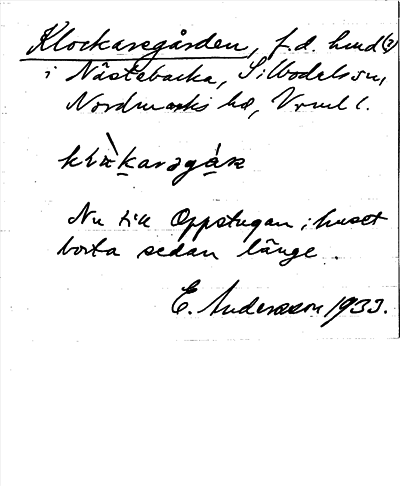 Klockaregården, f.d. hmd (?)
i Nästebacka, Silbodals sn,
Nordmarks hd, Vrml l.
klɑ̀karəgáɳ
Nu till Oppstugan; huset
borta sedan länge.
E. Andersson 1933.